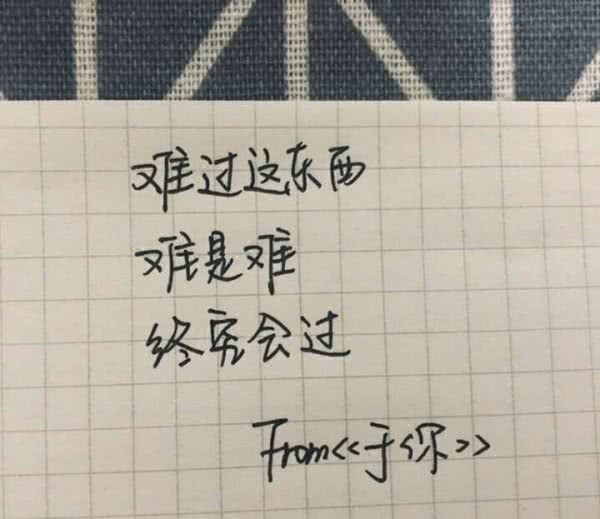 难过这东西
难是难
终究会过
From<<于你>>